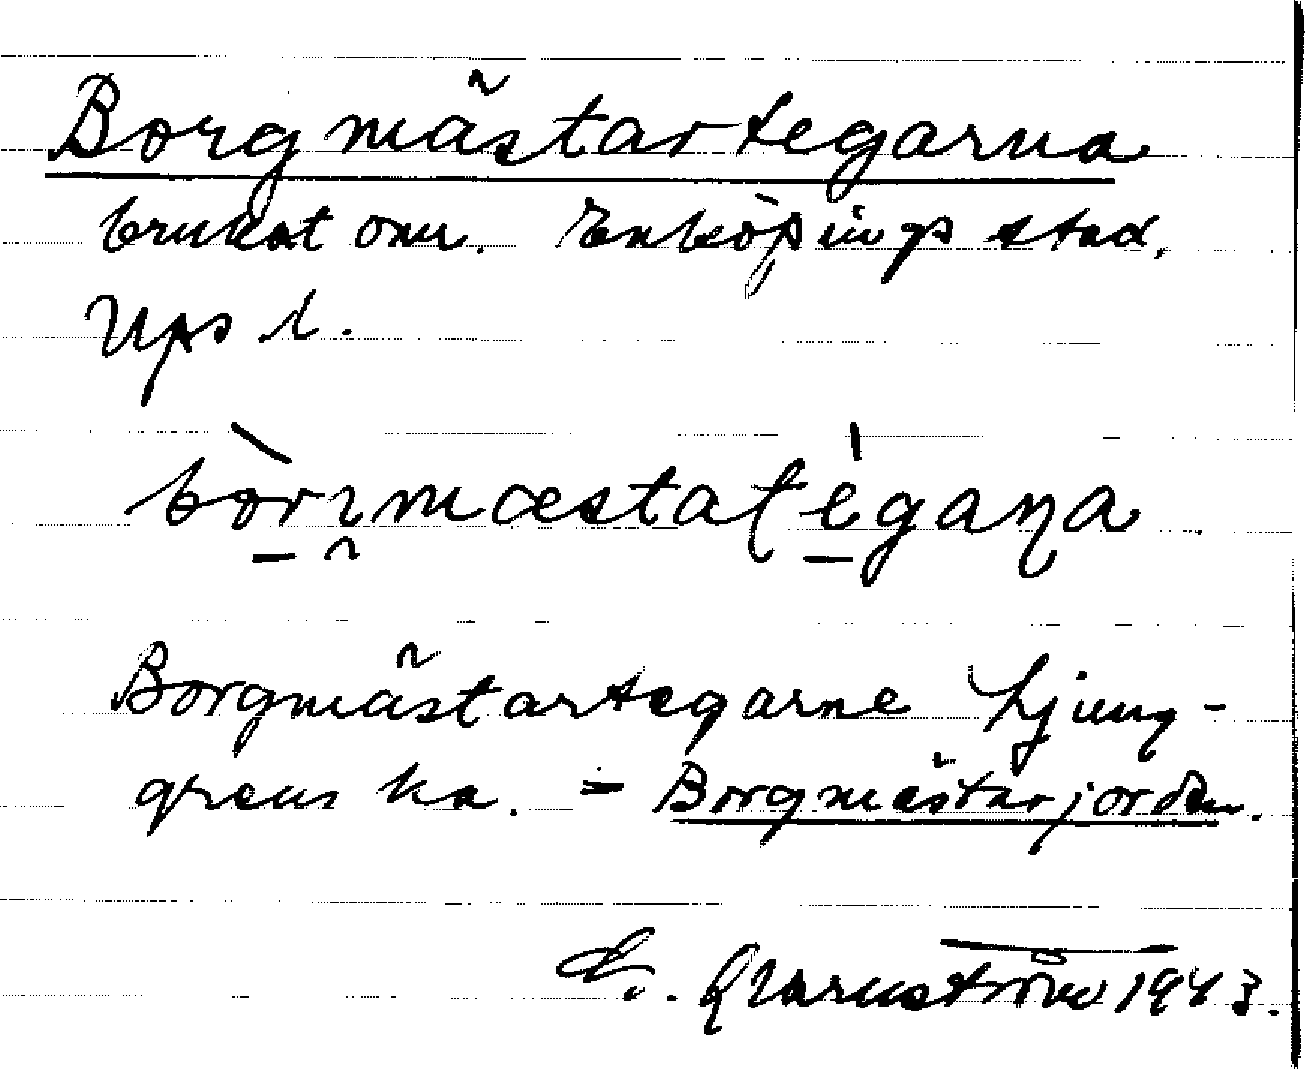 Borgmästartegarna
brukat omr. Enköpings stad,
Ups l.
bòrꞅmæstatègaɳa
Borgmästartegarne Ljung-
grens ka. = Borgmästarjorden.
E. Qvarnström 1943.